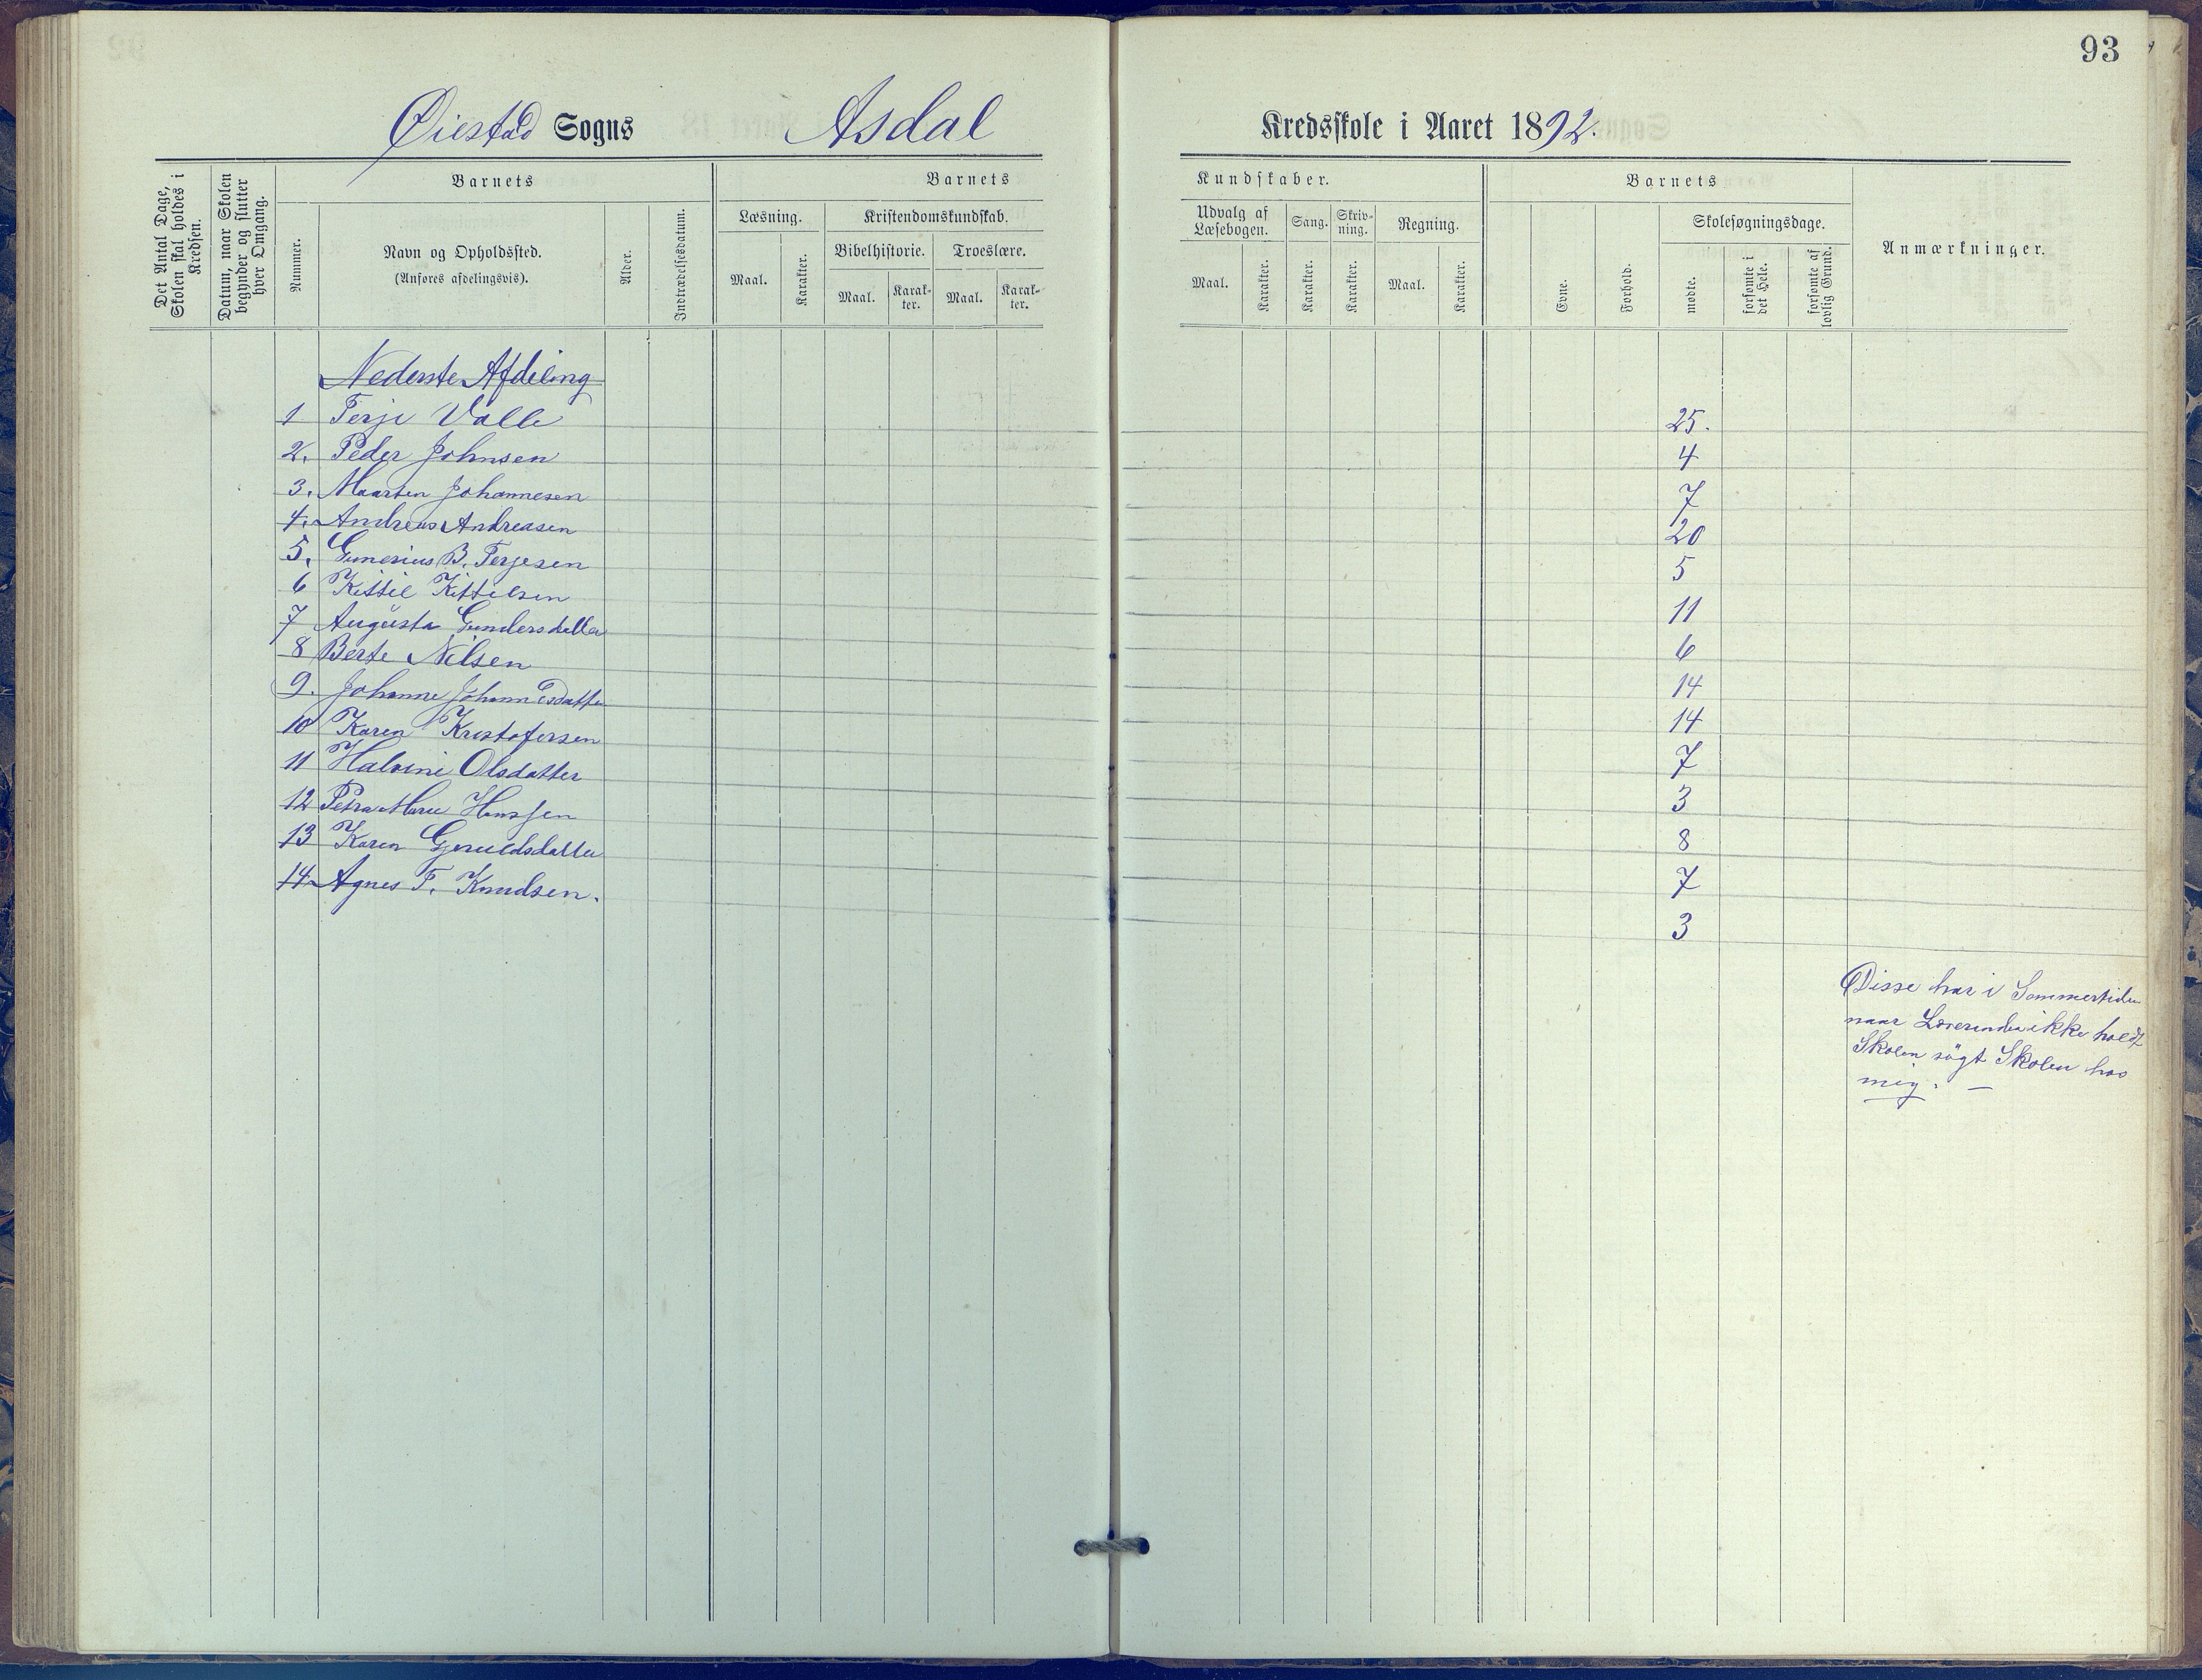 93
Øiestad Sogns Asdal Kredsskole i Aaret 1892.
Det Antal Dage, Skolen skal holdes i Kredsen.
Datum, naar Skolen begynder og slutter hver Omgang.
Barnets
Nummer.
Navn og Opholdssted.
(Anføres afdelingsvis).
Alder.
Indtrædelsesdatum.
Barnets
Læsning.
Maal.
Karakter.
Kristendomskundskab.
Bibelhistorie.
Maal.
Karak-
ter.
Troeslære.
Maal.
Karak-
ter.
Kundskaber.
Udvalg af
Læsebogen.
Maal.
Karakter.
Sang.
Karakter.
Skriv-
ning.
Karakter.
Regning.
Maal.
Karakter.
Barnets
Evne.
Forhold.
Skolesøgningsdage.
mødte.
forsømte i det Hele.
forsømte af lovlig Grund.
Anmærkninger.
Nederste Afdeling
1 Terje Valle 25.
2. Peder Johnsen 4
3. Maarten Johannesen 7
4. Andreas Andreasen 20
5. Gunerius B. Terjesen 5
6 Kittil Kittelsen 11
7 Augusta Gundersdatter 6
8 Berte Nilsen 14
9. Johanne Johannesdatter 14
10 Karen Kristofersen 7
11 Halvine Olsdatter 3
12 Petra Marie Hanssen 8
13 Karen Gjeruldsdatter 7
14 Agnes T. Knudsen. 3
Disse har i Sommertiden
naar Lærerinden ikke holdt
Skolen søgt Skolen hos
mig. —